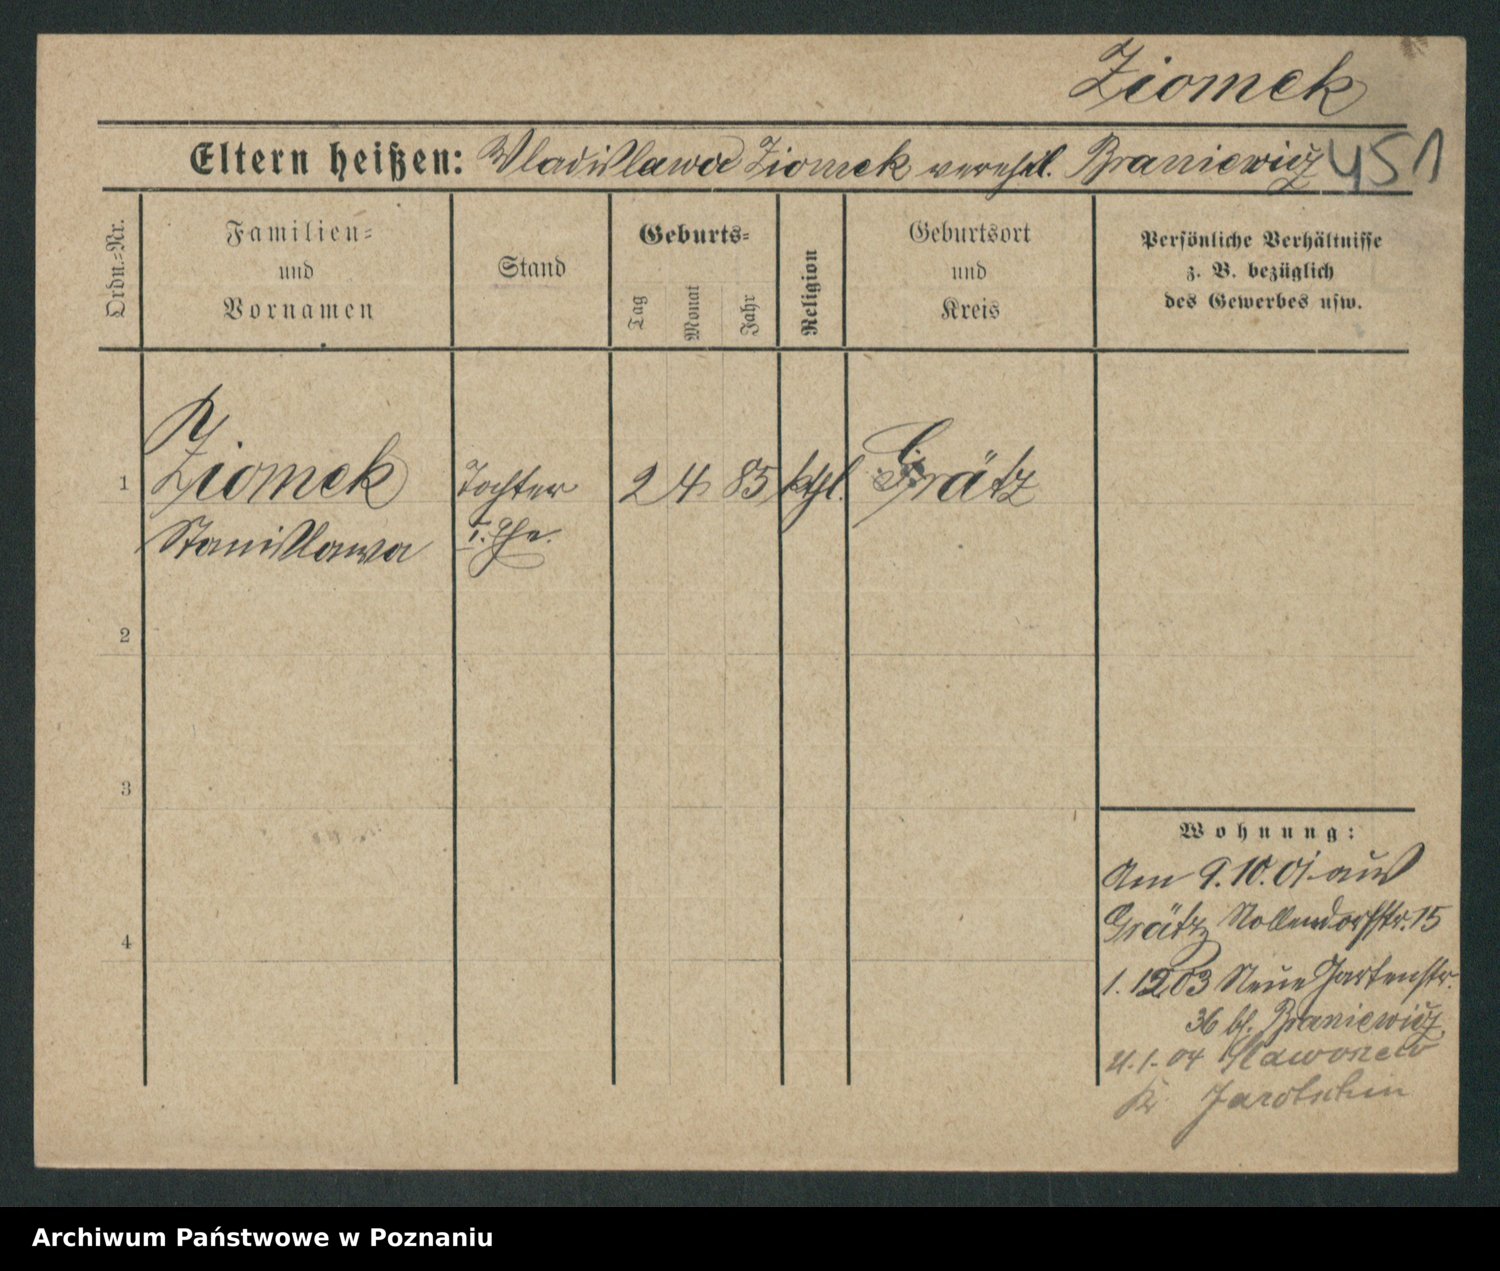 Ziomek
Eltern heißen: Wladislawa Ziomek verehel. Braniewicz
451
Ordn.-Nr.
Familien-
und
Vornamen
Stand
Geburts-
Tag
Monat
Jahr
Religion
Geburtsort
und
Kreis
Persönliche Verhältnisse
z. B. bezüglich
des Gewerbes usw.
1 Ziomek Tochter 2 4 85 kthl. Grätz
Stanislawa I. Ehe.
2
3
4
Wohnung:
Am 9.10.01 aus
Grätz Nollendorfstr. 15
1.1203 Neue Gartenstr.
36 bf. Braniewicz
4.1.04
Kr. Jarotschin
Archiwum Państwowe w Poznaniu